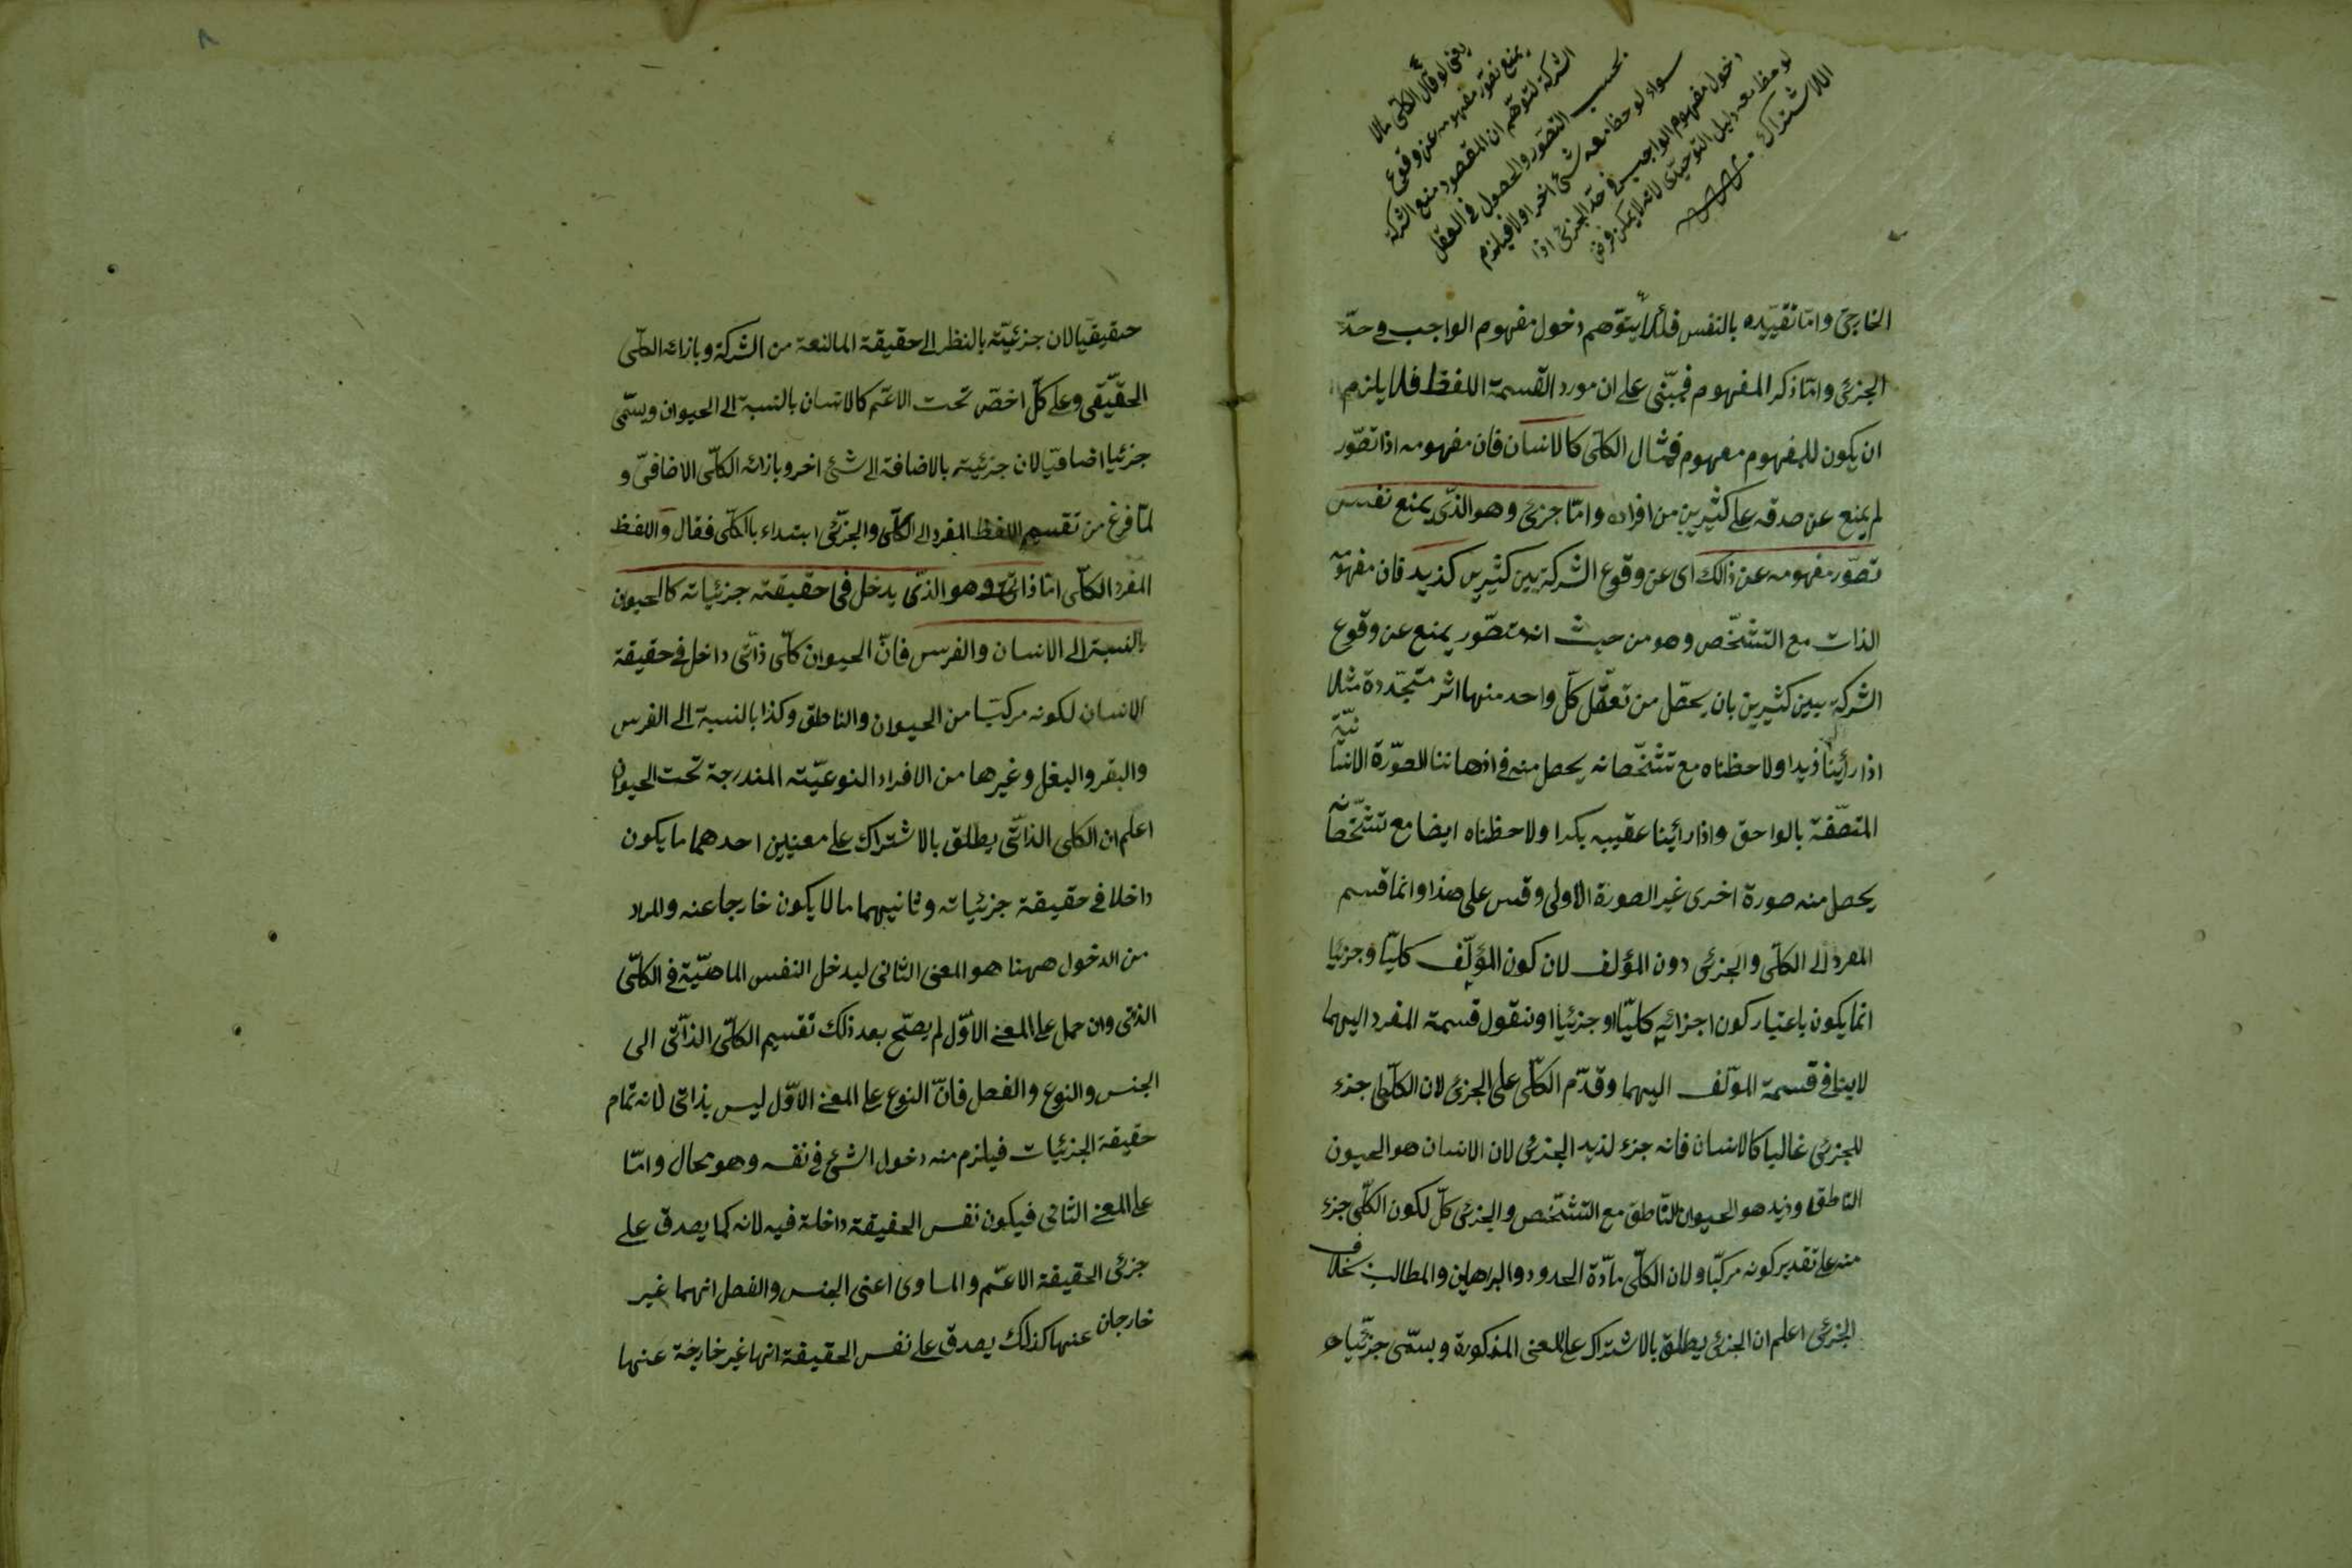 يعنى لو قال الكلى مالا
يمنع تصور مفهومه عن وقوع
الشركة لتوهم ان المقصود منع الشركة
بحسب التصور والحصول فى العقل
سواء لوحظ معه شئ اخر اولا فيلزم
دخول مفهوم الواجب فى حدّ الجزئى اذا
لوحظ معه دليل التوحيدى لانه لا يمكن فرض
الاشتراك
الخارجى وامّا تقييده بالنفس فلئلا يتوّهم دخول مفهوم الواجب فى حدّ
الجزئى وامّا ذكر المفهوم فمبّنى على ان مورد القسمة اللفظ فلا يلزم
ان يكون للمفهوم مفهوم فمثال الكلّى كالانسان فان مفهومه اذا تصّور
لم يمنع عن صدقه على كثيرين من افراده وامّا جزئى وهو الذّى يمنع نفس
تصّور مفهومه عن ذالك اى عن وقوع الشركة بين كثيرين كذيد فان مفهومه
الذات مع التشخّص وهو من حيث انه متصّور يمنع عن وقوع
الشركة بين كثيرين بان يحصّل من تعقّل كلّ واحد منها اثر متجّددة مثلا
اذا رأينا ذيدا ولاحظناه مع تشخّصاته يحصل منه فى اذهاننا الصّورة الانسانيّة
المتصّفة بالواحق واذا رأينا عقيبه بكرا ولاحظناه ايضا مع تشخّصاته
يحصل منه صورة اخرى غير الصورة الاولى وقس على هذا وانما قسم
المفرد الى الكلّى والجزئى دون المؤلف لان كون المؤلّف كليّا وجزئيا
انما يكون باعتبار كون اجزائه كليّا او جزئيا او نقول قسمة المفرد اليهما
لا ينافى قسمة المؤلف اليهما وقدّم الكلّى على الجزئى لان الكلّى جزء
للجزئى غالبا كالانسان فانه جزء لذيد الجزئى لان الانسان هو الحيون
الناطق وذيد هو الحيوان النّاطق مع التشخّص والجزئى كلّ لكون الكلّى جزء
منه على تقدير كونه مركبّا ولان الكلّى مادّة الحدود والبراهين والمطالب بخلاف
الجزئى اعلم ان الجزئى يطلق بالاشتراك على المعنى المذكورة ويسمّى جزئيّا
حقيقيّا لان جزئيّته بالنظر الى حقيقة المانعة من الشركة وبازائه الكلّى
الحقيّقى وعلى كلّ اخصّ تحت الاعّم كالانسان بالنسبة الى الحيوان ويسمّى
جزئيا اضافيّا لان جزئيته بالاضافة الى شئ اخر وبازائه الكلّى الاضافىّ و
لمّا فرغ من تقسيم اللفظ المفرد الى الكلّى والجزّئى ابتداء بالكلّى فقال واللفظ
المفرد الكلّى امّا ذاتىّ وهو الذّى يدخل فى حقيقته جزئياته كالحيون
بالنسبة الى الانسان والفرس فانّ الحيوان كلّى ذاتّى داخل فى حقيقة
الانسان لكونه مركبّا من الحيوان والناطق وكذا بالنسبة الى الفرس
والبقر والبغل وغيرها من الافراد النوعيّته المندرجة تحت الحيوان
اعلم ان الكلى الذاتّى يطلق بالاشتراك على معنيين احدهما ما يكون
داخلا فى حقيقة جزئياته وثانيهما ما لا يكون خارجا عنه والمراد
من الدخول ههنا هو المعنى الثانى ليدخل النفس الماهيّة فى الكلّى
الذتى وان حمل على المعنى الاوّل لم يصّح بعد ذلك تقسيم الكلّى الذاتّى الى
الجنس والنوع والفصل فانّ النوع على المعنى الاوّل ليس بذاتى لانه تمام
حقيقة الجزئيات فيلزم منه دخول الشئ فى نفسه وهو محال وامّا
على المعنى الثانى فيكون نفس الحقيقة داخلة فيه لانه كما يصدق على
جزئى الحقيقة الاعّم والمساوى اعنى الجنس والفصل انهما غير
خارجان عنها كذالك يصدق على نفس الحقيقة انها غير خارجة عنها